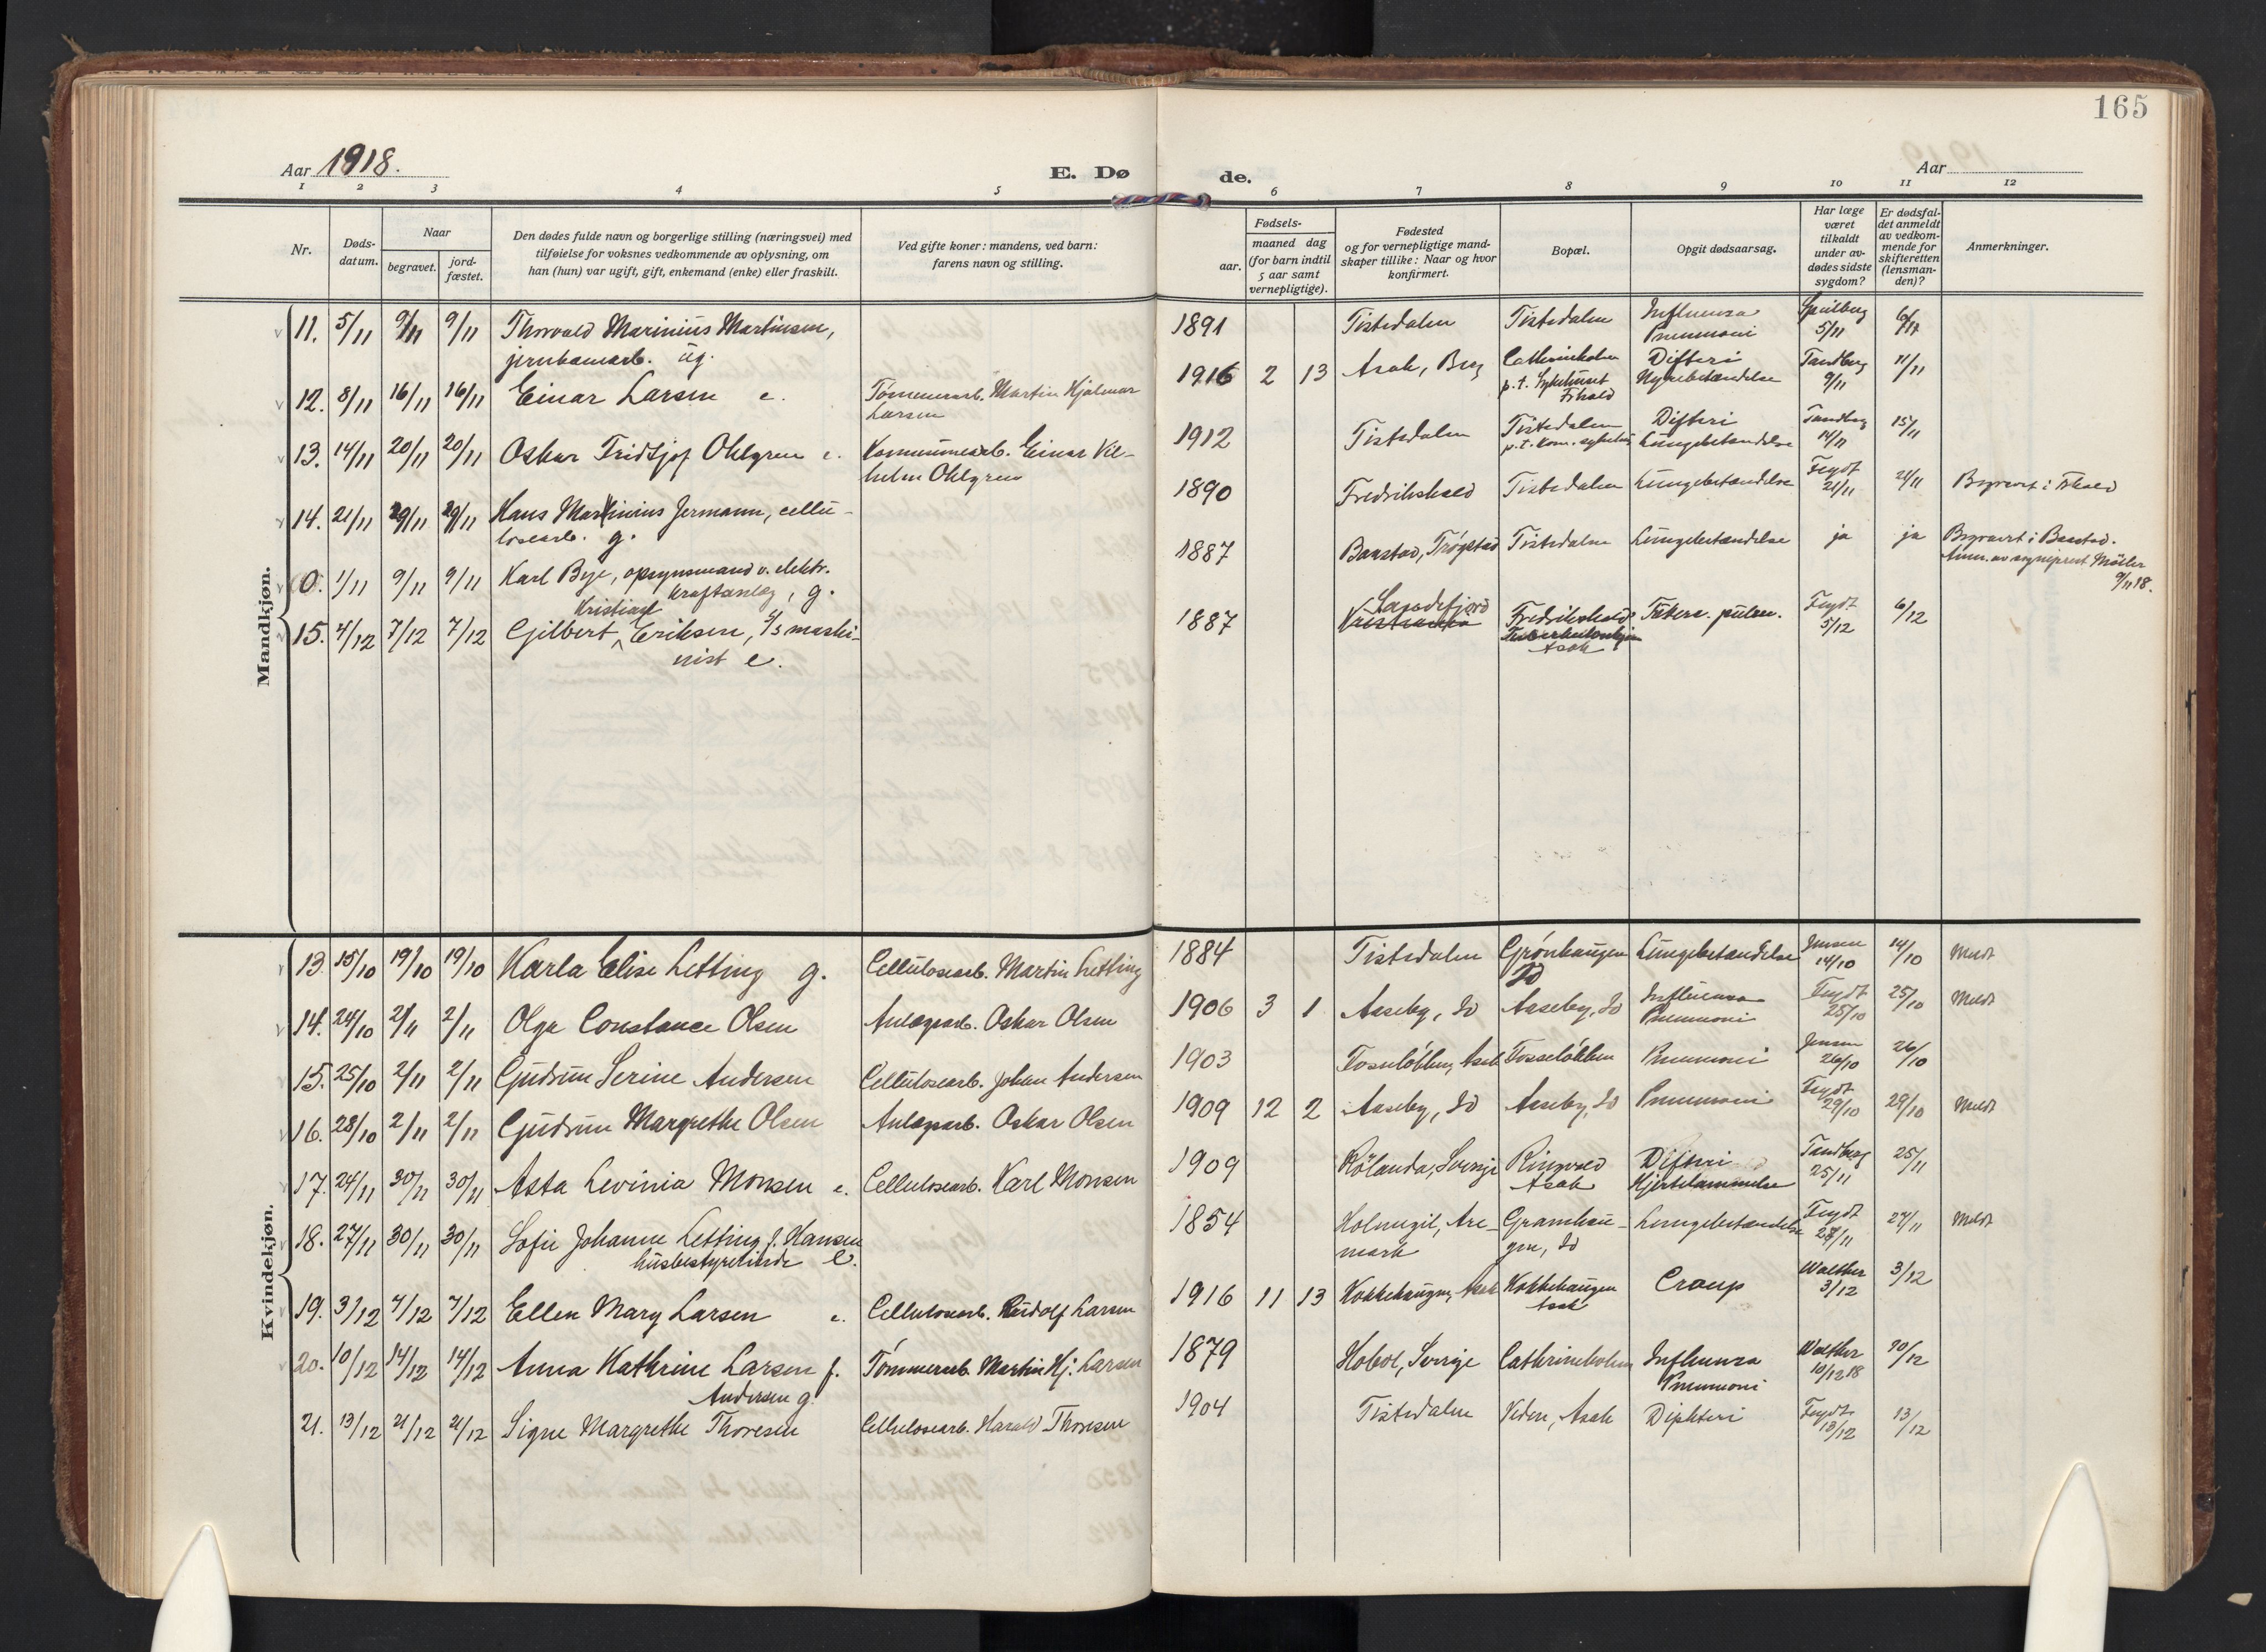 165
Aar 1918.
E. Dø
de.
Aar
1 2 3 4 5 6 7 8 9 10 11 12
Nr.
Døds-
datum.
Naar
begravet.
jord-
fæstet.
Den dødes fulde navn og borgerlige stilling (næringsvei) med
tilføielse for voksnes vedkommende av oplysning, om
han (hun) var ugift, gift, enkemand (enke) eller fraskilt.
Ved gifte koner: mandens, ved barn:
farens navn og stilling.
Fødsels-
aar.
maaned dag
(for barn indtil
5 aar samt
vernepligtige).
Fødested
og for vernepligtige mand-
skaper tillike: Naar og hvor
konfirmert.
Bopæl.
Opgit dødsaarsag.
Har læge
været
tilkaldt
under av-
dødes sidste
sygdom?
Er dødsfal-
det anmeldt
av vedkom-
mende for
skifteretten
(lensman-
den)?
Anmerkninger.
Mandkjøn.
11. 5/11 9/11 9/11 Thorvald Marinius Martinsen, 1891 Tistedalen Tistedalen Influensa 5/11 6/11
jernbanearb. ug. Pneumoni
12. 8/11 16/11 16/11 Einar Larsen e. Tømmerarb. Martin Hjalmar 1916 2 13 Asak, Berg Cathrineholm Difteri Tandberg 9/11 11/11
Larsen p.t. Sykehuset Frhald Nyrebetændelse
13. 14/11 20/11 20/11 Oskar Fridtjof Ohlgren e. Kommunearb. Einar Vil- 1912 Tistedalen Tistedalen Difteri Tandberg 14/11 15/11
helm Ohlgren p.t. Kom. sykehus Lungebetændelse
14. 21/11 29/11 29/11 Hans Martinius Jermann, cellu- 1890 Fredrikshald Tistedalen Lungebetændelse Feydt 21/11 21/11 Begravet i Frhald
losearb. g.
0. 1/11 9/11 9/11 Karl Bye, opsynsmand v. elektr. 1887 Baastad, Trøgstad Tistedalen Lungebetændelse ja ja Begravet i Baastad.
kraftanlæg, g. Anm. av sogneprest Møller
9/11 18.
15. 4/12 7/12 7/12 Gilbert Kristian Eriksen, D/s maski- 1887 Sandefjord Kristiania Fredrikshald Tuberc. pulm. Feydt 5/12 6/12
nist e. Asak
Kvindekjøn.
13. 15/10 19/10 19/10 Karla Elise Letting g. Cellulosearb. Martin Letting 1884 Tistedalen Grønhaugen Lungebetændelse Jensen 14/10 14/10 Meldt
Id
14. 24/10 2/11 2/11 Olga Constance Olsen Anlægsarb. Oskar Olsen 1906 3 1 Aaseby, Id Aaseby, Id Influensa Feydt 25/10 25/10 Meldt
Pneumoni
15. 25/10 2/11 2/11 Gudrun Serine Andersen Cellulosearb. Johan Andersen 1903 Fosseløkken, Asak Fosseløkken Pneumoni Jensen 26/10 26/10
16. 28/10 2/11 2/11 Gudrun Margrethe Olsen Anlægsarb. Oskar Olsen 1909 12 2 Aaseby, Id Aaseby, Id Pneumoni Feydt 29/10 29/10 Meldt
17. 24/11 30/11 30/11 Asta Levinia Monsen e. Cellulosearb. Karl Monsen 1909 Rölanda, Sverige Ringvold Difteri Tandberg 25/11 25/11
Asak Hjertelammelse
18. 27/11 30/11 30/11 Sofie Johanne Letting f. Hansen 1854 Holmegil, Are- Granhau- Lungebetændelse Feydt 28/11 27/11 Meldt
husbestyrerinde e. mark gen, Id
19. 3/12 7/12 7/12 Ellen Mary Larsen e. Cellulosearb. Rudolf Larsen 1916 11 13 Kokkehaugen, Asak Kokkehaugen Croup Walther 3/12 3/12
Asak
20. 10/12 14/12 14/12 Anna Kathrine Larsen f. Tømmerarb. Martin Hj. Larsen 1879 Hobol, Sverige Cathrineholm Influensa Walther 10/12 18 10/12
Andersen g. Pneumoni
21. 13/12 21/12 21/12 Signe Margrethe Thoresen Cellulosearb. Harald Thoresen 1904 Tistedalen Veden, Asak Diphteri Feydt 13/12 13/12